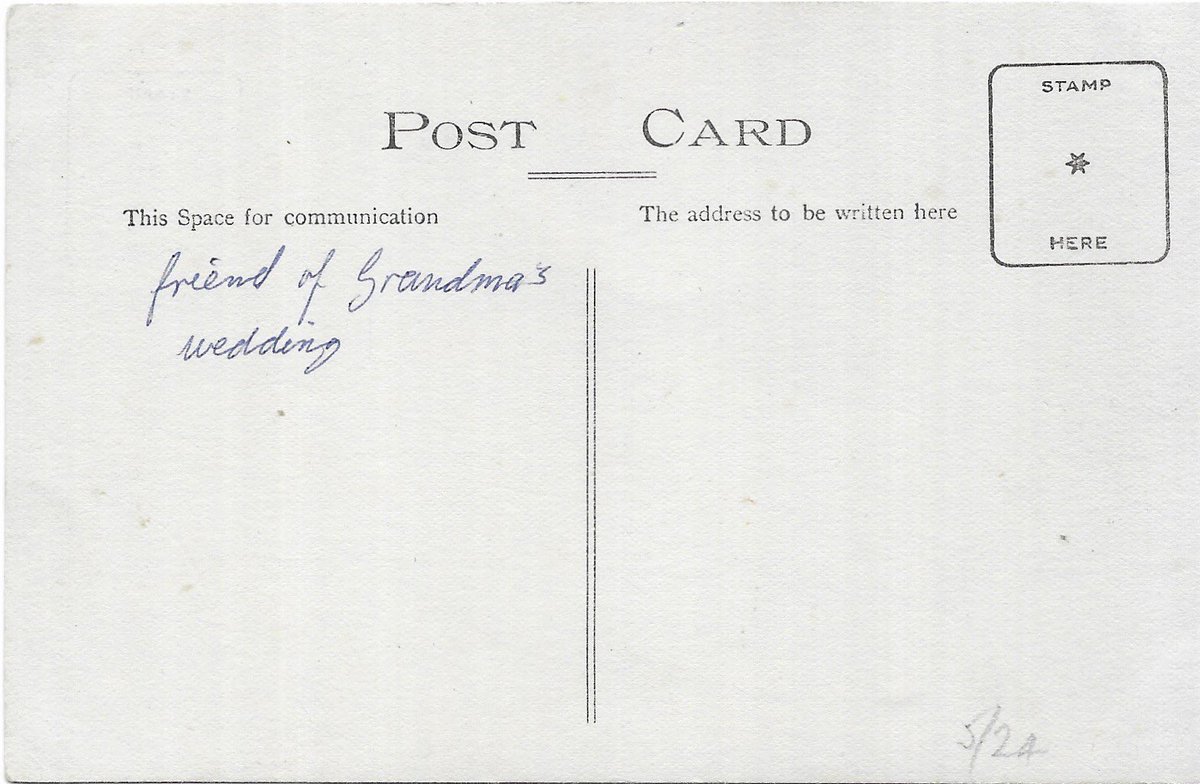 POST CARD
STAMP
HERE
This Space for communication
The address to be written here
friend of Grandma's
wedding
5/24